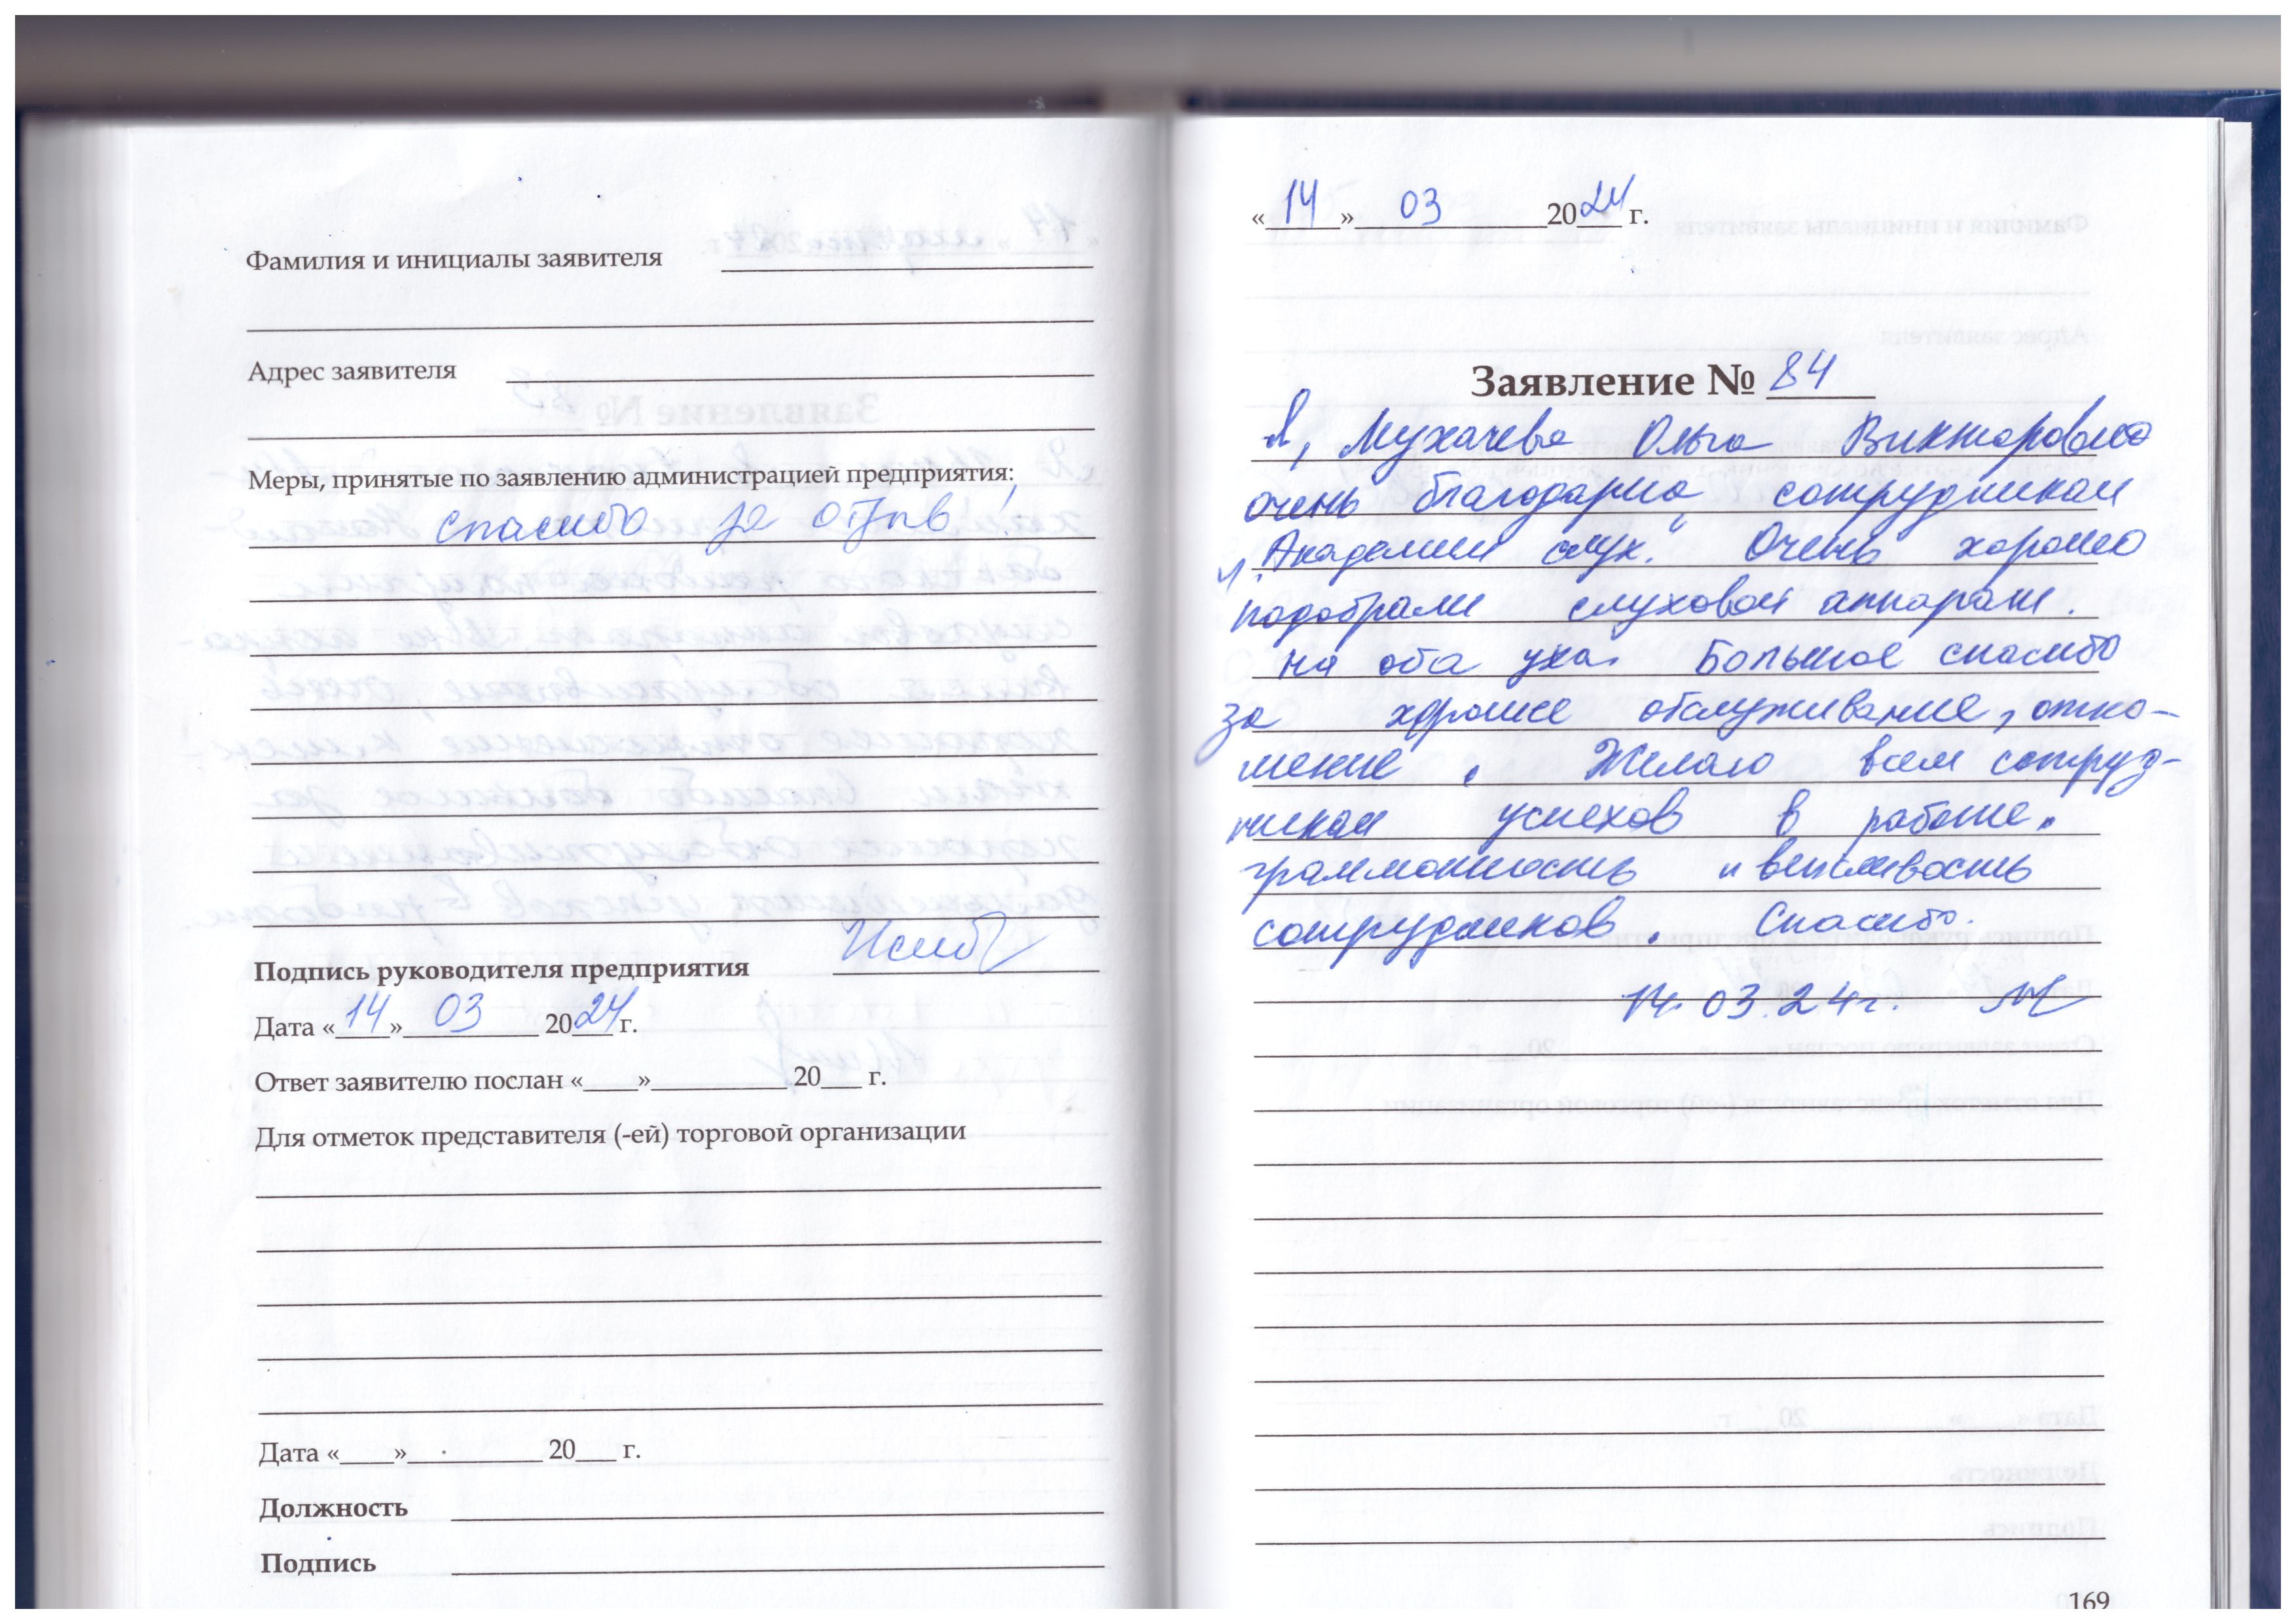 Фамилия и инициалы заявителя
Адрес заявителя
Меры, принятые по заявлению администрацией предприятия:
спасибо за отзыв!
Подпись руководителя предприятия
Дата «14» 03 2024 г.
Ответ заявителю послан «____»__________ 20___ г.
Для отметок представителя (-ей) торговой организации
Дата «____»__________ 20___ г.
Должность
Подпись
«14» 03 2024 г.
Заявление № 84
Я, Мухачева Ольга Викторовна
очень благодарна сотрудникам
"Академии слух." Очень хорошо
подобрали слуховой аппарат.
на оба уха. Большое спасибо
за хорошее обслуживание, отно-
шение. Желаю всем сотруд-
никам успехов в работе.
граммотность и вежливость
сотрудников. Спасибо.
14.03.24г.
169